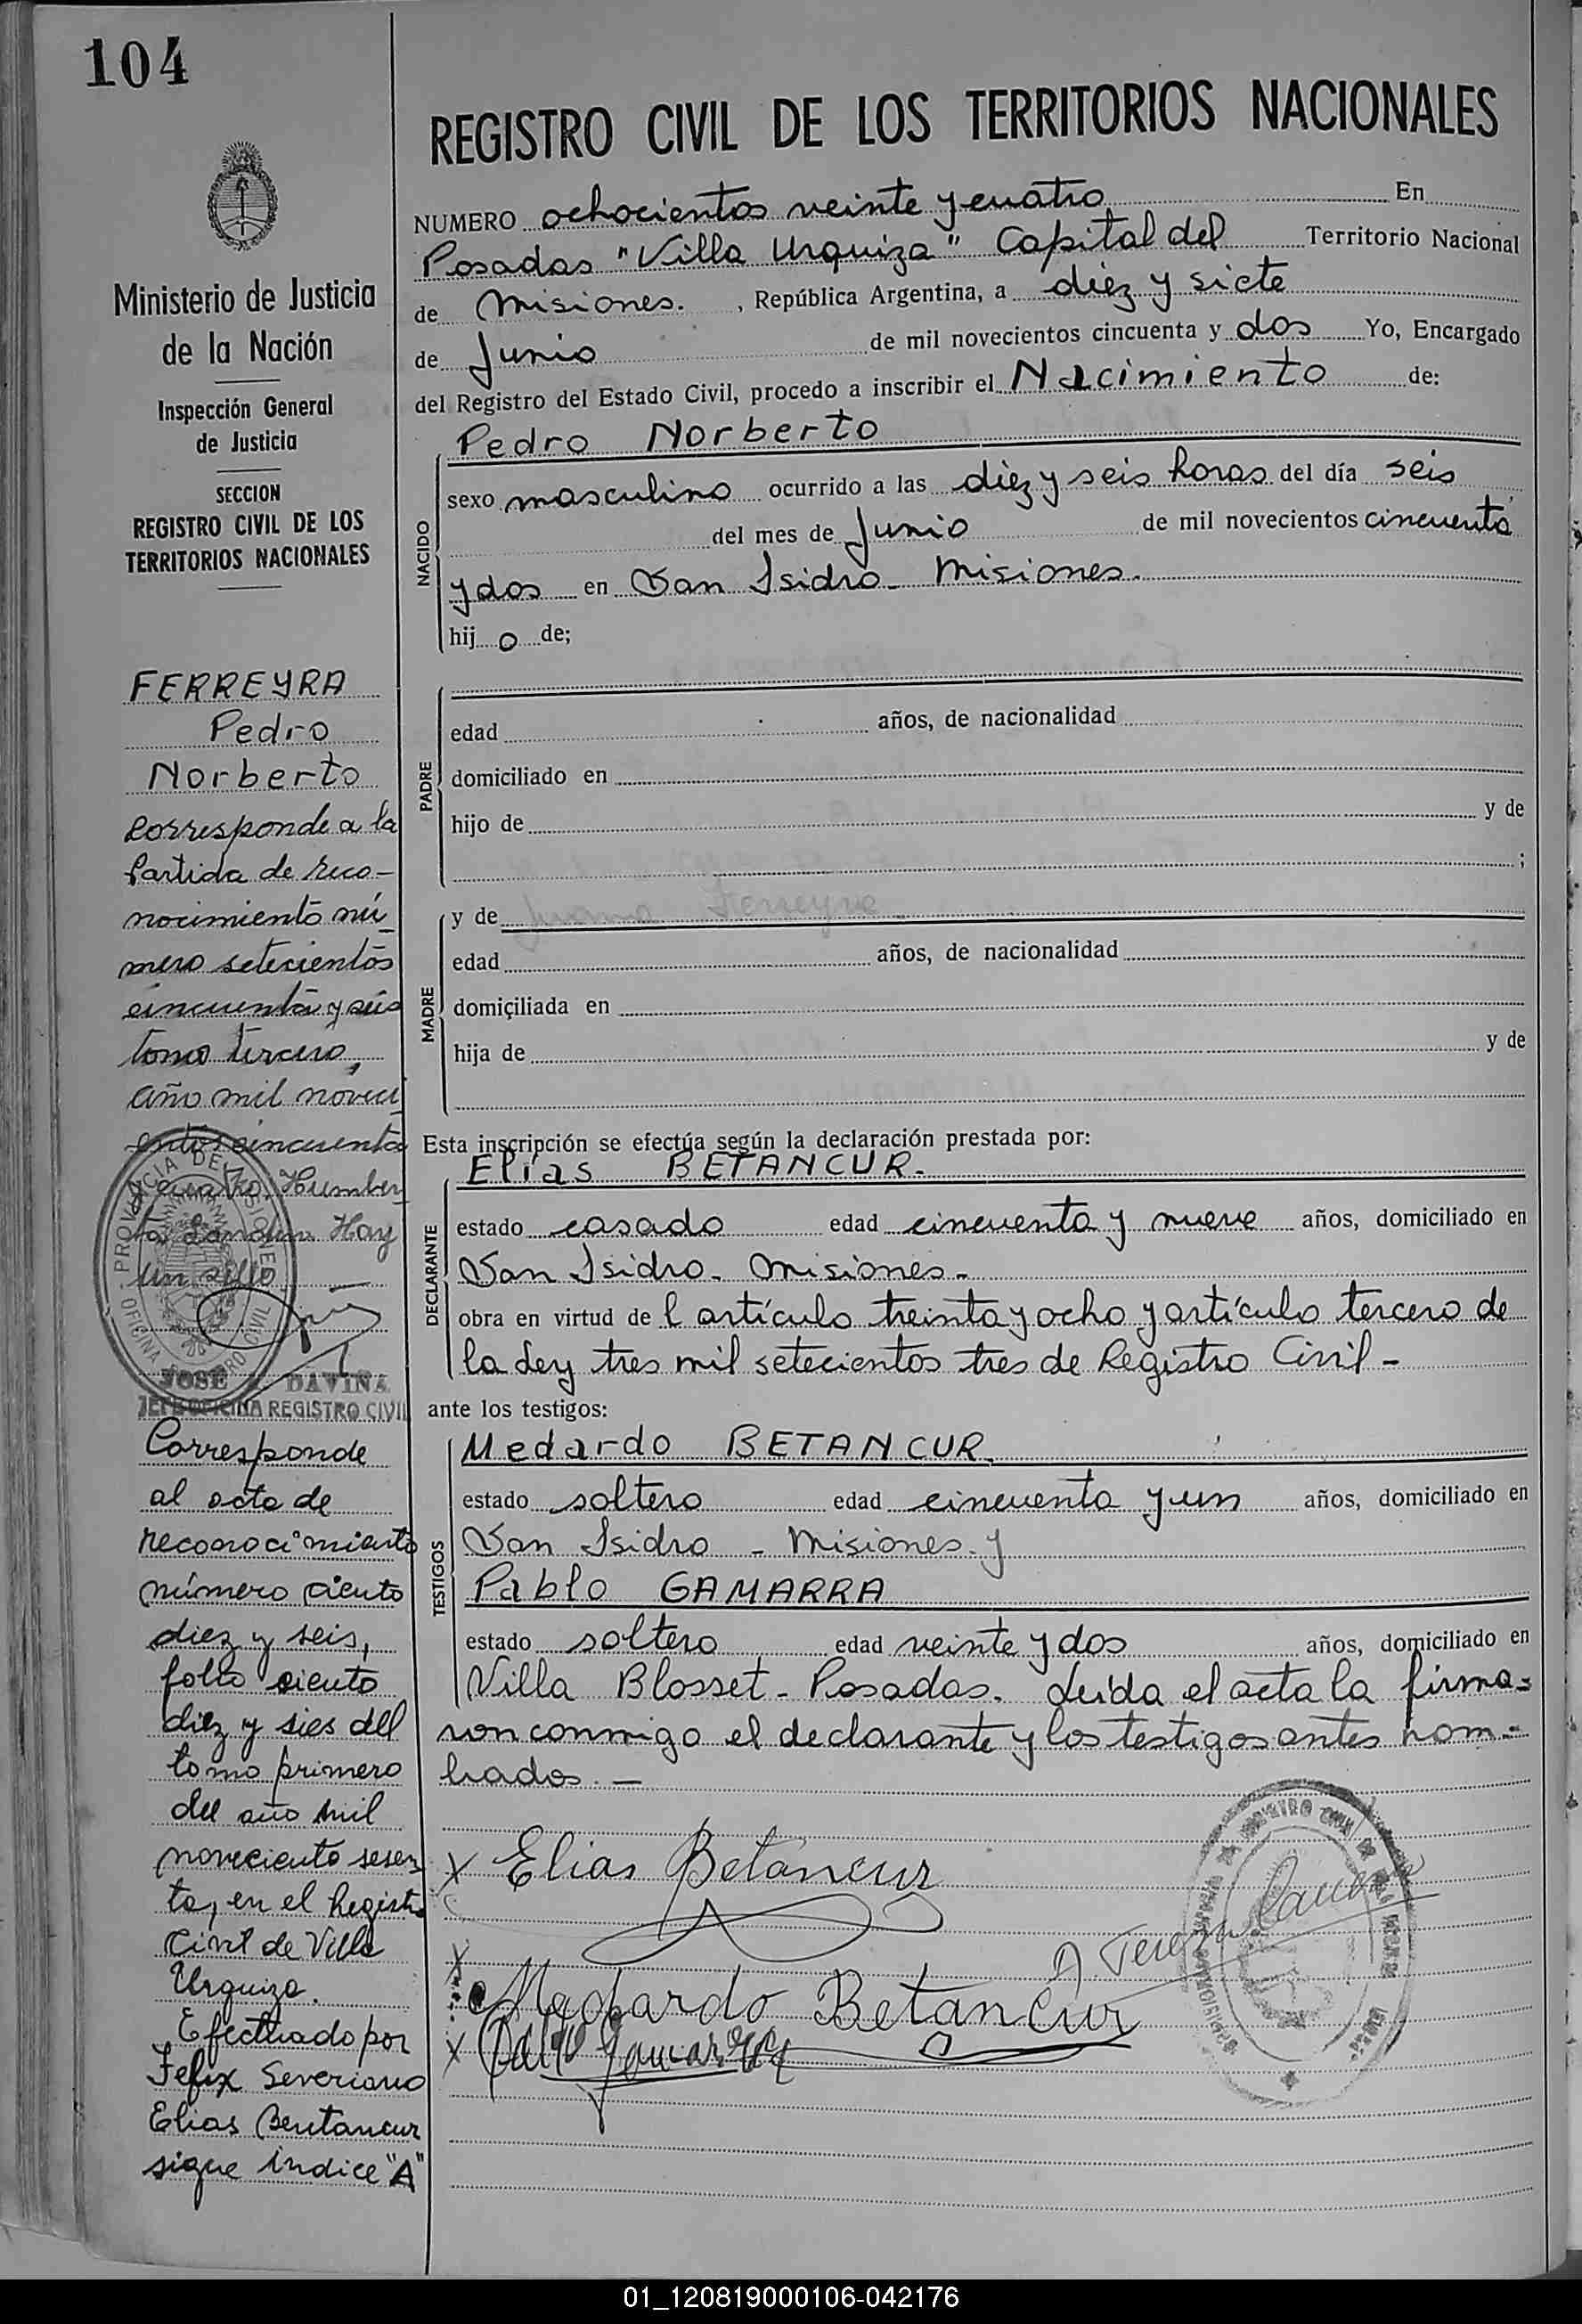 104
Ministerio de Justicia
de la Nación
Inspección General
de Justicia
SECCION
REGISTRO CIVIL DE LOS
TERRITORIOS NACIONALES
FERREYRA
Pedro
Norberto
corresponde a la
Partida de reco-
nocimiento nú-
mero setecientos
cincuenta y seis
tomo tercero,
año mil noveci
entos cincuenta
y cuatro. Humber
to Hay
un sello
PROVINCIA DE MISIONES
OFICINA REGISTRO CIVIL
JOSE DAVIÑA
JEFE OFICINA REGISTRO CIVIL
Corresponde
al acta de
reconocimiento
número ciento
diez y seis,
folio ciento
diez y sies del
tomo primero
del año mil
noveciento sesen
ta, en el Registro
Civil de Villa
Urquiza.
Efectuado por
Felix Severiano
Elias Bentancur
sigue indice "A"
REGISTRO CIVIL DE LOS TERRITORIOS NACIONALES
NUMERO ochocientos veinte y cuatro En
Posadas "Villa Urquiza" Capital del Territorio Nacional
de Misiones. , República Argentina, a diez y siete
de Junio de mil novecientos cincuenta y dos Yo, Encargado
del Registro del Estado Civil, procedo a inscribir el Nacimiento de:
NACIDO
Pedro Norberto
sexo masculino ocurrido a las diez y seis horas del día seis
del mes de Junio de mil novecientos cincuenta
y dos en San Isidro - Misiones.
hij o de;
PADRE
edad años, de nacionalidad
domiciliado en
hijo de y de
;
MADRE
y de Juana Ferreyra
edad años, de nacionalidad
domiciliada en
hija de y de
Esta inscripción se efectúa según la declaración prestada por:
DECLARANTE
Elías BETANCUR.
estado casado edad cincuenta y nueve años, domiciliado en
San Isidro - Misiones -
obra en virtud de l artículo treinta y ocho y artículo tercero de
la Ley tres mil setecientos tres de Registro Civil -
ante los testigos:
TESTIGOS
Medardo BETANCUR.
estado soltero edad cincuenta y un años, domiciliado en
San Isidro - Misiones. y
Pablo GAMARRA
estado soltero edad veinte y dos años, domiciliado en
Villa Blosset - Posadas. Leída el acta la firma=
ron conmigo el declarante y los testigos antes nom=
brados. -
x Elias Betancur
x Medardo Betancur
x Pablo Gamarra
01_120819000106-042176